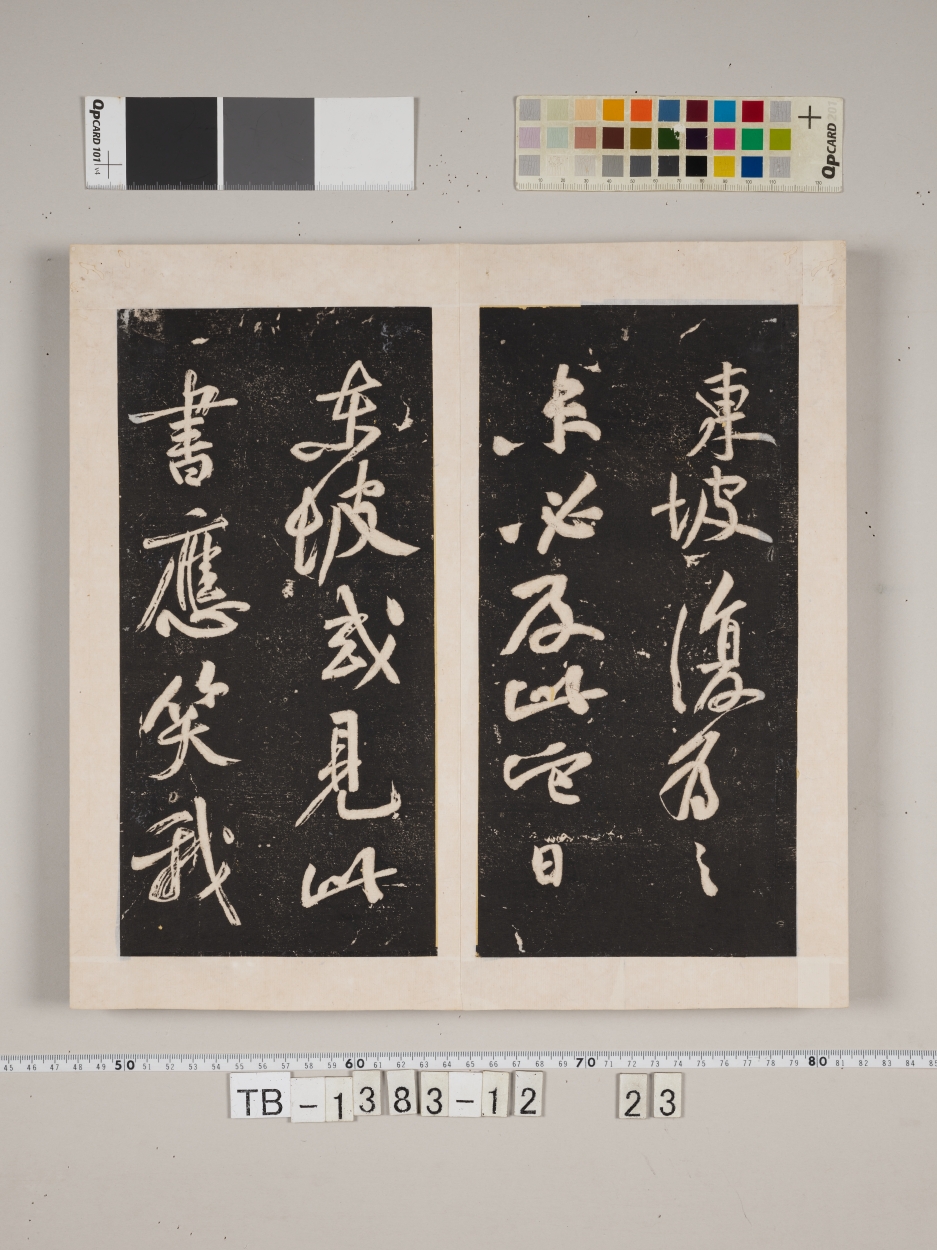 東坡復為之
未必及此它日
東坡或見此
書應笑我
QPCARD 101 v4
QPCARD 201
45 46 47 48 49 50 51 52 53 54 55 56 57 58 59 60 61 62 63 64 65 66 67 68 69 70 71 72 73 74 75 76 77 78 79 80 81 82 83 84 85
TB-1383-12 23